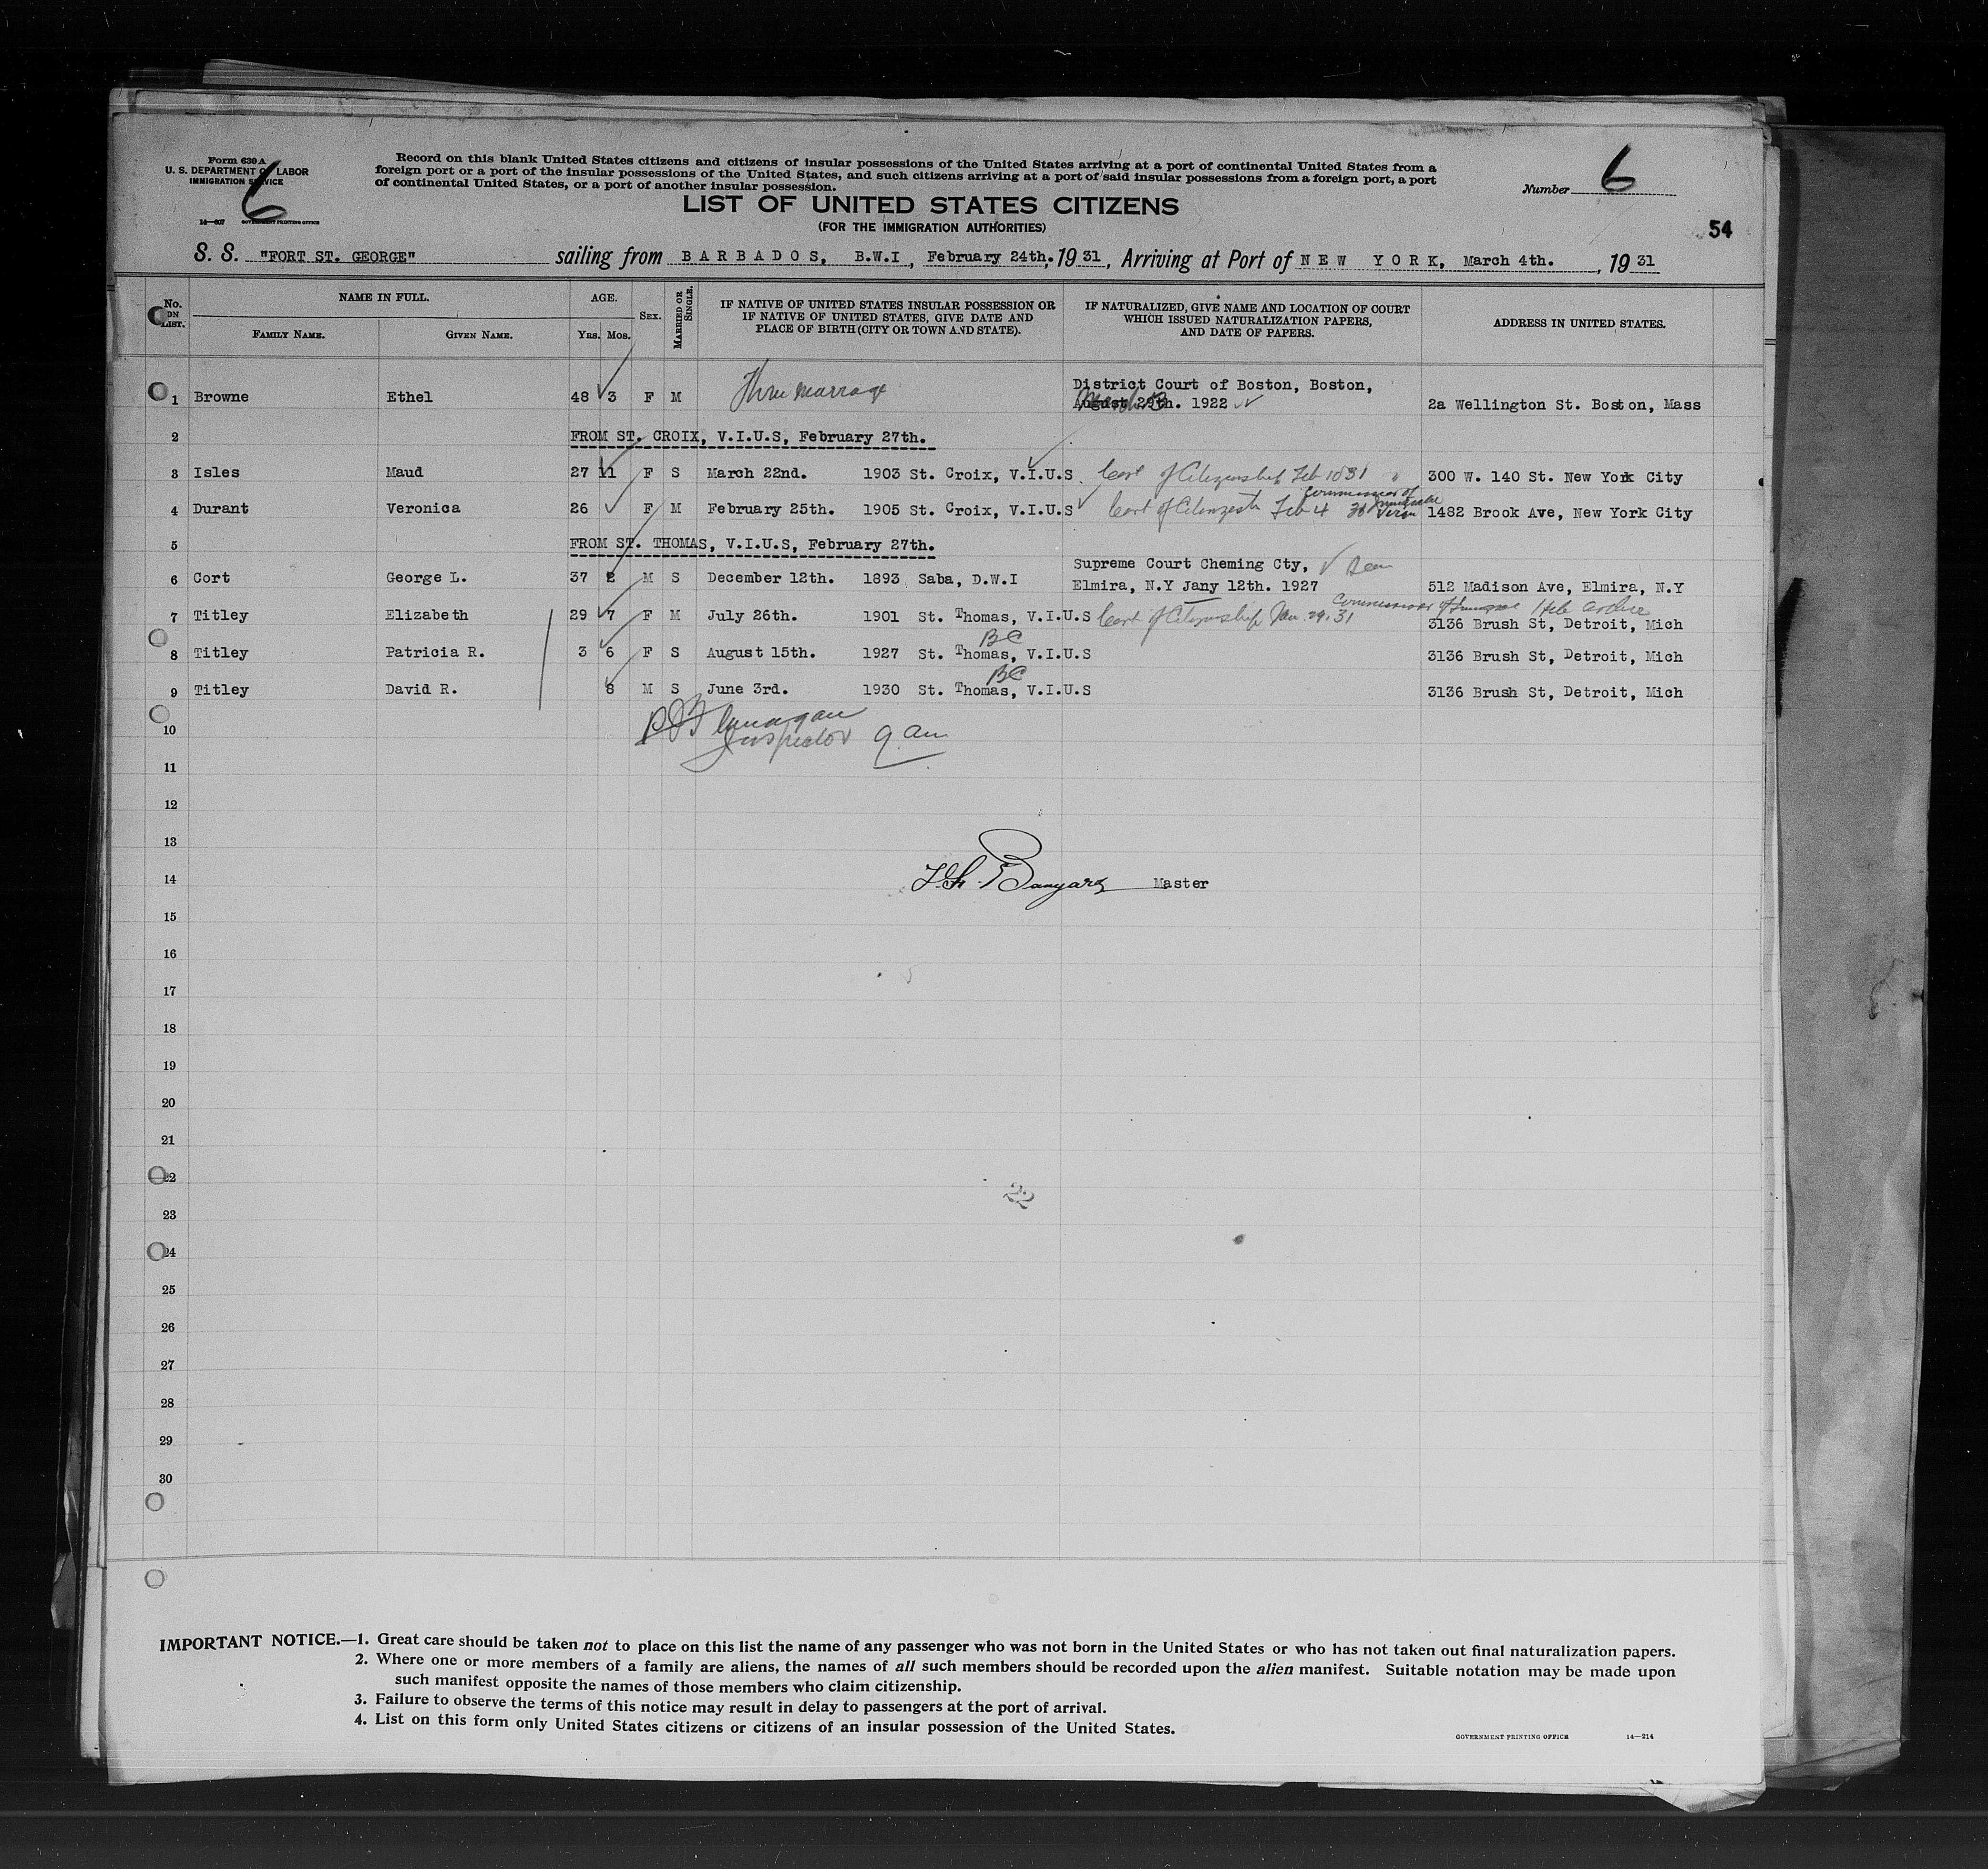 Form 630 A
U. S. DEPARTMENT OF LABOR
IMMIGRATION SERVICE
14—607 GOVERNMENT PRINTING OFFICE
6
Record on this blank United States citizens and citizens of insular possessions of the United States arriving at a port of continental United States from a
foreign port or a port of the insular possessions of the United States, and such citizens arriving at a port of said insular possessions from a foreign port, a port
of continental United States, or a port of another insular possession.
Number 6
LIST OF UNITED STATES CITIZENS
(FOR THE IMMIGRATION AUTHORITIES)
54
S. S. "FORT ST. GEORGE" sailing from BARBADOS, B.W.I, February 24th, 1931, Arriving at Port of NEW YORK, March 4th. , 1931
No. ON LIST. NAME IN FULL. FAMILY NAME. GIVEN NAME. AGE. YRS. MOS. SEX. MARRIED OR SINGLE. IF NATIVE OF UNITED STATES INSULAR POSSESSION OR IF NATIVE OF UNITED STATES, GIVE DATE AND PLACE OF BIRTH (CITY OR TOWN AND STATE). IF NATURALIZED, GIVE NAME AND LOCATION OF COURT WHICH ISSUED NATURALIZATION PAPERS, AND DATE OF PAPERS. ADDRESS IN UNITED STATES.
1 Browne Ethel 48 3 F M Thru marriage District Court of Boston, Boston,
August 29th. 1922 2a Wellington St. Boston, Mass
2 FROM ST. CROIX, V.I.U.S, February 27th.
3 Isles Maud 27 11 F S March 22nd. 1903 St. Croix, V.I.U.S. Cert of Citizenship Feb 10 31 300 W. 140 St. New York City
4 Durant Veronica 26 F M February 25th. 1905 St. Croix, V.I.U.S Cert of Citizenship Feb 4 31 1482 Brook Ave, New York City
5 FROM ST. THOMAS, V.I.U.S, February 27th.
6 Cort George L. 37 2 M S December 12th. 1893 Saba, D.W.I Supreme Court Cheming Cty, Seen
Elmira, N.Y Jany 12th. 1927 512 Madison Ave, Elmira, N.Y
7 Titley Elizabeth 29 7 F M July 26th. 1901 St. Thomas, V.I.U.S Cert of Citizenship Jan. 29. 31 3136 Brush St, Detroit, Mich
BC
8 Titley Patricia R. 3 6 F S August 15th. 1927 St. Thomas, V.I.U.S 3136 Brush St, Detroit, Mich
BC
9 Titley David R. 8 M S June 3rd. 1930 St. Thomas, V.I.U.S 3136 Brush St, Detroit, Mich
10 Inspector 9 am
11
12
13
14 Master
15
16
17
18
19
20
21
22
22
23
24
25
26
27
28
29
30
IMPORTANT NOTICE.—1. Great care should be taken not to place on this list the name of any passenger who was not born in the United States or who has not taken out final naturalization papers.
2. Where one or more members of a family are aliens, the names of all such members should be recorded upon the alien manifest. Suitable notation may be made upon
such manifest opposite the names of those members who claim citizenship.
3. Failure to observe the terms of this notice may result in delay to passengers at the port of arrival.
4. List on this form only United States citizens or citizens of an insular possession of the United States.
GOVERNMENT PRINTING OFFICE 14—214